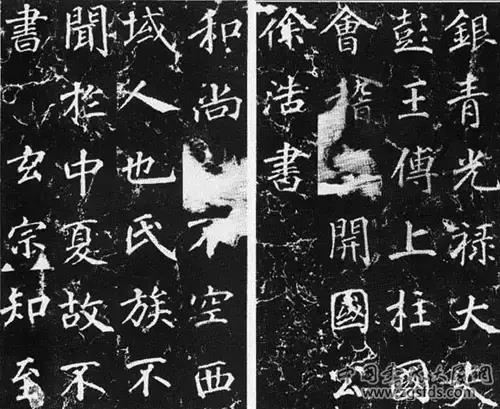 銀青光祿大夫
彭王傅上柱國
會稽開國公
徐浩書
和尚不空西
域人也氏族不
聞於中夏故不
書玄宗知至
www.zgsfds.com